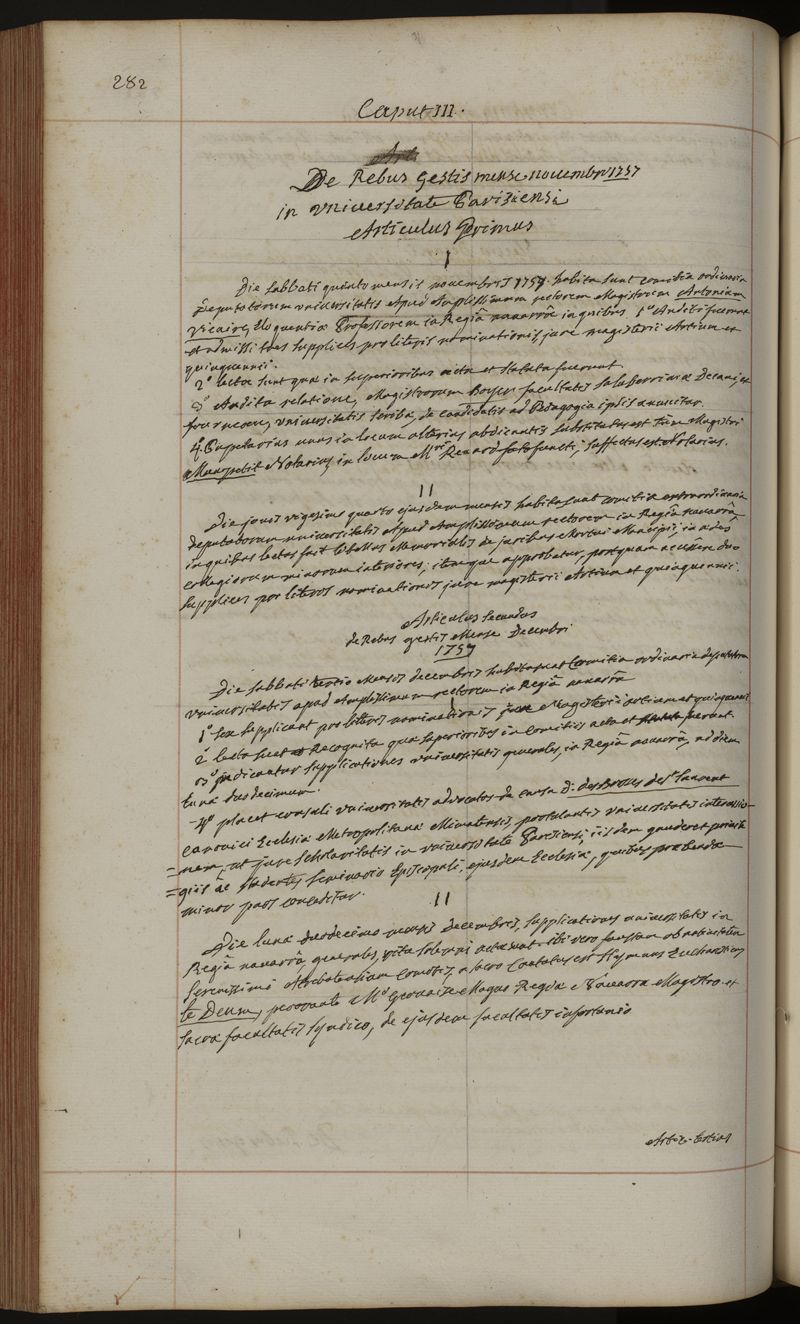 282
Caput III.
De Rebus gestis mense novembri 1757
in Universitate Parisiensi
Articulus Primus
I
Die sabbati quinto mensis novembris 1757. habita sunt comitia ordinaria
Deputatorum universitatis apud Amplissimum rectorem Magistrum Antonium
Vicaire, Eloquentiæ Professorem in Regiâ navarrâ in quibus 1° Auditi fuerunt
et admissi tres supplices pro literis nominationis, jure magisterii Artium et
quinquennii.
2° lecta sunt quæ in superioribus acta et statuta fuerunt.
3° Audita relatione, Magistrorum Boyer facultatis saluberrimæ Decani, et
fourneau, universitatis scribæ, de candidatis ad Pædagogia ipsis
4° Papetarius unus in locum alterius abdicantis substitutus est tum Magistri
Notarius, in locum Mri Renard fato functi, suffectus est Notarius.
II
Die jovis vigesimo quarto ejusdem mensis habita sunt comitia extraordinaria
deputatorum universitatis apud Amplissimum rectorem in Regiâ navarrâ
in quibus lectus fuit libellus Memorialis de juribus
collegiorum minorum interiores; itaque approbatur, postquam duo
supplices pro literis nominationis jure magisterii Artium et quinquennii.
Articulus secundus
de Rebus gestis Mense Decembri
1757
Die sabbati tertio Mensis decembris habita sunt Comitia ordinaria deputatorum
universitatis apud Amplissimum rectorem in Regiâ navarrâ
1° sex supplicant pro literis nominationis jure Magisterii artium et quinquennii
2° lecta sunt et Recognita quæ superioribus in comitiis acta et fuerant.
3° indicantur supplicationes universitatis generales, in Regiâ navarrâ, ad diem
lunæ duodecimum.
4° placet consuli universitatis advocatos de causa D. des Brosses de St Laurent
canonici Ecclesiæ Metropolitanæ postulantis universitatis intercessio-
=nem, ut jure scholaritatis in universitate Parisiensi, iisdem gauderet privile
=giis ac studentes seminario Episcopali, ejusdem Ecclesiæ, quibus præbendæ
minor pars conceditur.
II
Die lunæ duodecimo mensis Decembris, supplicationes universitatis in
Regiâ navarrâ, generales, rite solemni actæ sunt. ibi vero faustam ob nativitatem
serenissimi Atrebatensium Comitis, a sacro Cantatus est Hymnus Eucharisticus
te Deum, perorante Mo Gervaise Magno Regiæ Navarræ Magistro et
sacræ facultatis syndico, de ejusdem facultatis